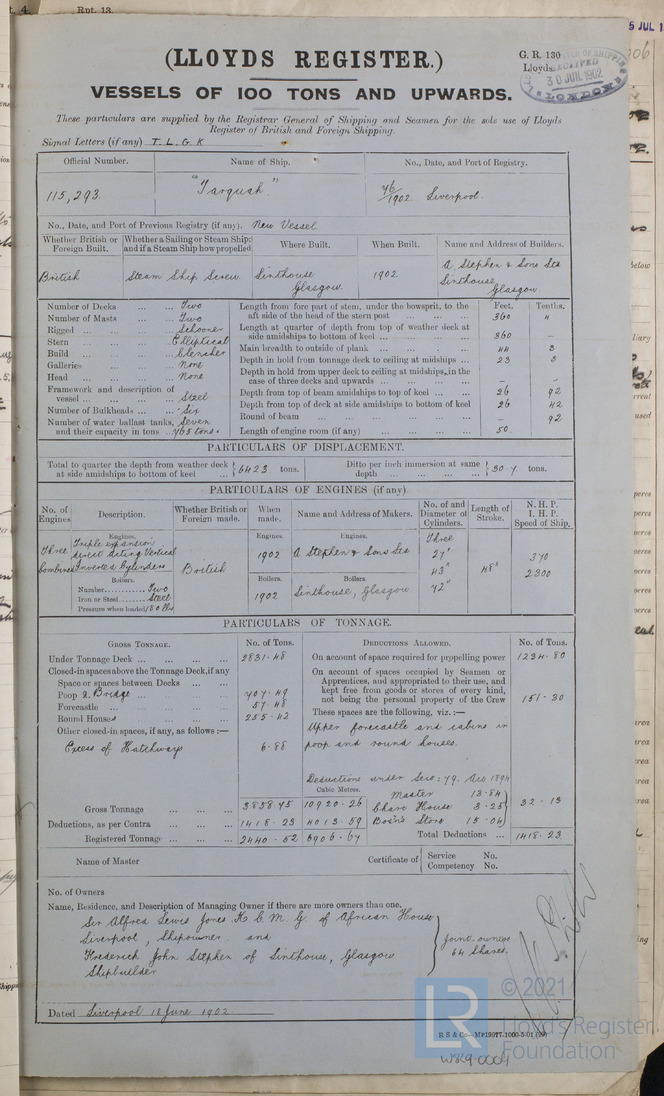 t. 4. Rpt. 13.
5 JUL 1
(LLOYDS REGISTER.)
G. R. 130
Lloyds
RECEIVED
30 JUN. 1902
LONDON
VESSELS OF 100 TONS AND UPWARDS.
These particulars are supplied by the Registrar General of Shipping and Seamen for the sole use of Lloyds
Register of British and Foreign Shipping.
Signal Letters (if any) T. L. G. K
Official Number. Name of Ship. No., Date, and Port of Registry.
115,293. "Tarquah." 76/1902 Liverpool.
No., Date, and Port of Previous Registry (if any). New Vessel
Whether British or Foreign Built. Whether a Sailing or Steam Ship: and if a Steam Ship how propelled Where Built. When Built. Name and Address of Builders.
British Steam Ship Screw Linthouse Glasgow. 1902 A Stephen & Sons Ltd Linthouse Glasgow
Number of Decks ... ... Two
Number of Masts ... ... Two
Rigged ... ... Schooner
Stern ... ... Elliptical
Build ... ... Clencher
Galleries ... ... None
Head ... ... None
Framework and description of
vessel ... ... Steel
Number of Bulkheads ... ... Six
Number of water ballast tanks, Seven
and their capacity in tons ... 765 tons.
Feet. Tenths.
Length from fore part of stem, under the bowsprit, to the
aft side of the head of the stern post ... 360 "
Length at quarter of depth from top of weather deck at
side amidships to bottom of keel ... 360 –
Main breadth to outside of plank ... 44 3
Depth in hold from tonnage deck to ceiling at midships ... 23 3
Depth in hold from upper deck to ceiling at midships, in the
case of three decks and upwards ... – –
Depth from top of beam amidships to top of keel ... 26 92
Depth from top of deck at side amidships to bottom of keel 26 42
Round of beam ... 92
Length of engine room (if any) ... 50
PARTICULARS OF DISPLACEMENT.
Total to quarter the depth from weather deck
at side amidships to bottom of keel ... 6423 tons.
Ditto per inch immersion at same
depth ... 30.7 tons.
PARTICULARS OF ENGINES (if any).
No. of Engines. Description. Whether British or Foreign made. When made. Name and Address of Makers. No. of and Diameter of Cylinders. Length of Stroke. N. H. P. I. H. P. Speed of Ship.
Engines. Engines. Engines.
Three Combined Triple expansion direct acting Vertical Inverted Cylinders
British 1902 A Stephen & Sons Ltd
Three 27" 43" 72" 48" 370 2300
Boilers. Boilers. Boilers.
Number ... Two
Iron or Steel ... Steel
Pressure when loaded 180 lbs
1902 Linthouse, Glasgow
PARTICULARS OF TONNAGE.
GROSS TONNAGE. No. of Tons.
Under Tonnage Deck ... 2831.48
Closed-in spaces above the Tonnage Deck, if any
Space or spaces between Decks ...
Poop & Bridge ... 707.49
Forecastle ... 57.48
Round Houses ... 255.42
Other closed-in spaces, if any, as follows :—
Excess of Hatchways 6.88
Cubic Metres.
Gross Tonnage ... 3858.75 10920.26
Deductions, as per Contra ... 1418.23 4013.59
Registered Tonnage ... 2440.52 6906.67
DEDUCTIONS ALLOWED. No. of Tons.
On account of space required for propelling power 1234.80
On account of spaces occupied by Seamen or
Apprentices, and appropriated to their use, and
kept free from goods or stores of every kind,
not being the personal property of the Crew 151.30
These spaces are the following, viz. :—
Upper forecastle and cabins in
poop and round houses.
Deductions under Sec: 79. Act 1894
Master 13.84
Chart House 3.25
Bosn's Store 15.04
32.13
Total Deductions ... 1418.23
Name of Master Certificate of Service No. Competency No.
No. of Owners
Name, Residence, and Description of Managing Owner if there are more owners than one.
Sir Alfred Lewis Jones K C M G of African House
Liverpool, Shipowner and
Frederick John Stephen of Linthouse, Glasgow
Shipbuilder
Joint owners
64 Shares.
Dated Liverpool 18 June 1902.
R S & Co—M
W829-0009
LR
© 2021
Lloyd's Register
Foundation